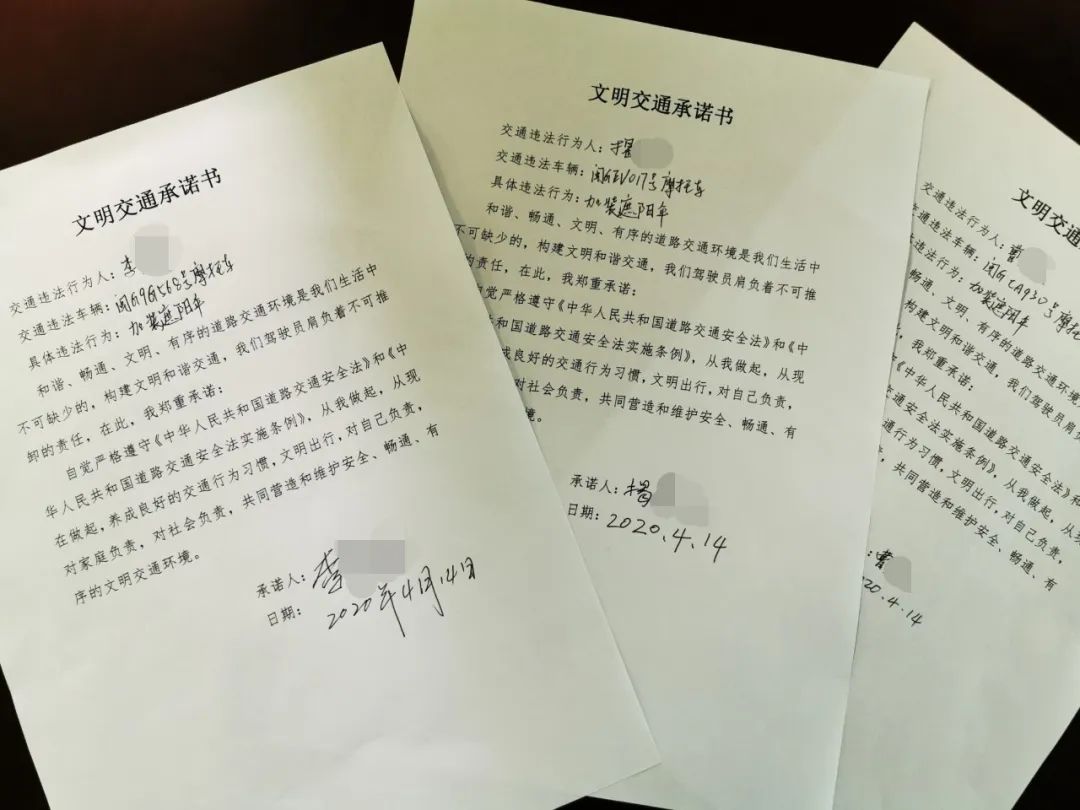 文明交通承诺书
交通违法行为人：李
交通违法车辆：闽G9G568号摩托车
具体违法行为：加装遮阳伞
和谐、畅通、文明、有序的道路交通环境是我们生活中
不可缺少的，构建文明和谐交通，我们驾驶员肩负着不可推
卸的责任，在此，我郑重承诺：
自觉严格遵守《中华人民共和国道路交通安全法》和《中
华人民共和国道路交通安全法实施条例》，从我做起，从现
在做起，养成良好的交通行为习惯，文明出行，对自己负责，
对家庭负责，对社会负责，共同营造和维护安全、畅通、有
序的文明交通环境。
承诺人：李
日期：2020年4月14日
文明交通承诺书
交通违法行为人：
交通违法车辆：闽GEV017号摩托车
具体违法行为：加装遮阳伞
和谐、畅通、文明、有序的道路交通环境是我们生活中
不可缺少的，构建文明和谐交通，我们驾驶员肩负着不可推
的责任，在此，我郑重承诺：
自觉严格遵守《中华人民共和国道路交通安全法》和《中
共和国道路交通安全法实施条例》，从我做起，从现
成良好的交通行为习惯，文明出行，对自己负责，
对社会负责，共同营造和维护安全、畅通、有
境。
承诺人：
日期：2020.4.14
文明交通
交通违法行为人：曹
交通违法车辆：闽GCA930号摩托
违法行为：加装遮阳伞
畅通、文明、有序的道路交通环境
构建文明和谐交通，我们驾驶员肩
，我郑重承诺：
《中华人民共和国道路交通安全法》和
交通安全法实施条例》，从我做起，从
通行为习惯，文明出行，对自己负责，
，共同营造和维护安全、畅通、有
：曹
2020.4.14